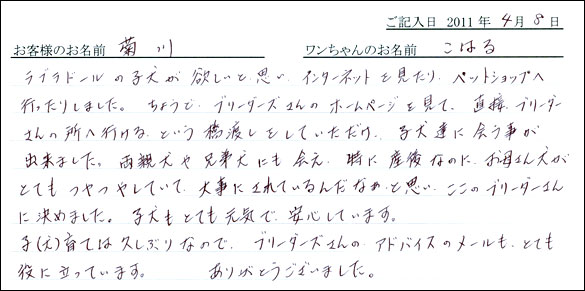 ご記入日 2011年 4月 8日
お客様のお名前 菊川 ワンちゃんのお名前 こはる
ラブラドールの子犬が欲しいと思い、インターネットを見たり、ペットショップへ
行ったりしました。ちょうど、ブリーダーズさんのホームページを見て、直接、ブリーダー
さんの所へ行ける、という橋渡しをしていただけ、子犬達に会う事が
出来ました。両親犬や兄弟犬にも会え、特に産後なのに、お母さん犬が
とてもつやつやしていて、大事にされているんだなぁ、と思い、ここのブリーダーさん
に決めました。子犬もとても元気で、安心しています。
子(犬)育ては久しぶりなので、ブリーダーズさんの、アドバイスのメールも、とても
役に立っています。 ありがとうございました。